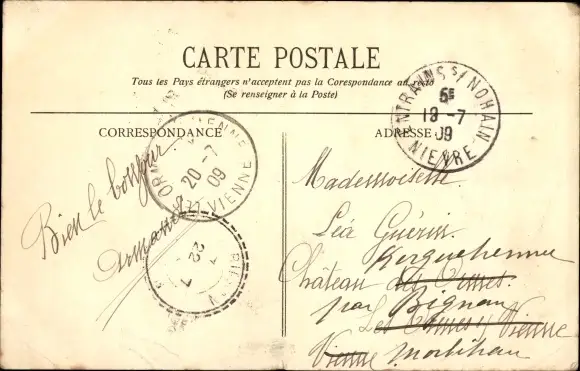 CARTE POSTALE
Tous les Pays étrangers n'acceptent pas la Corespondance au recto
(Se renseigner à la Poste)
CORRESPONDANCE
ADRESSE
ENTRAINS S/ NOHAIN
6E
19-7
09
NIEVRE
VIENNE
20-7
09
VIENNE
22 7
Bien le bonjour
Armand
Mademoiselle
Léa Guérin
Kerguehennec
Château des Ormes
par Bignan
Les Ormes s/ Vienne
Vienne Morbihan